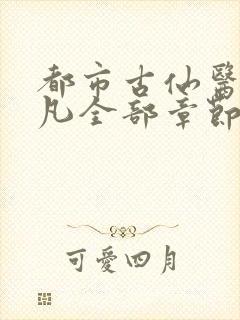 都市古仙醫
凡全部章節
可愛四月